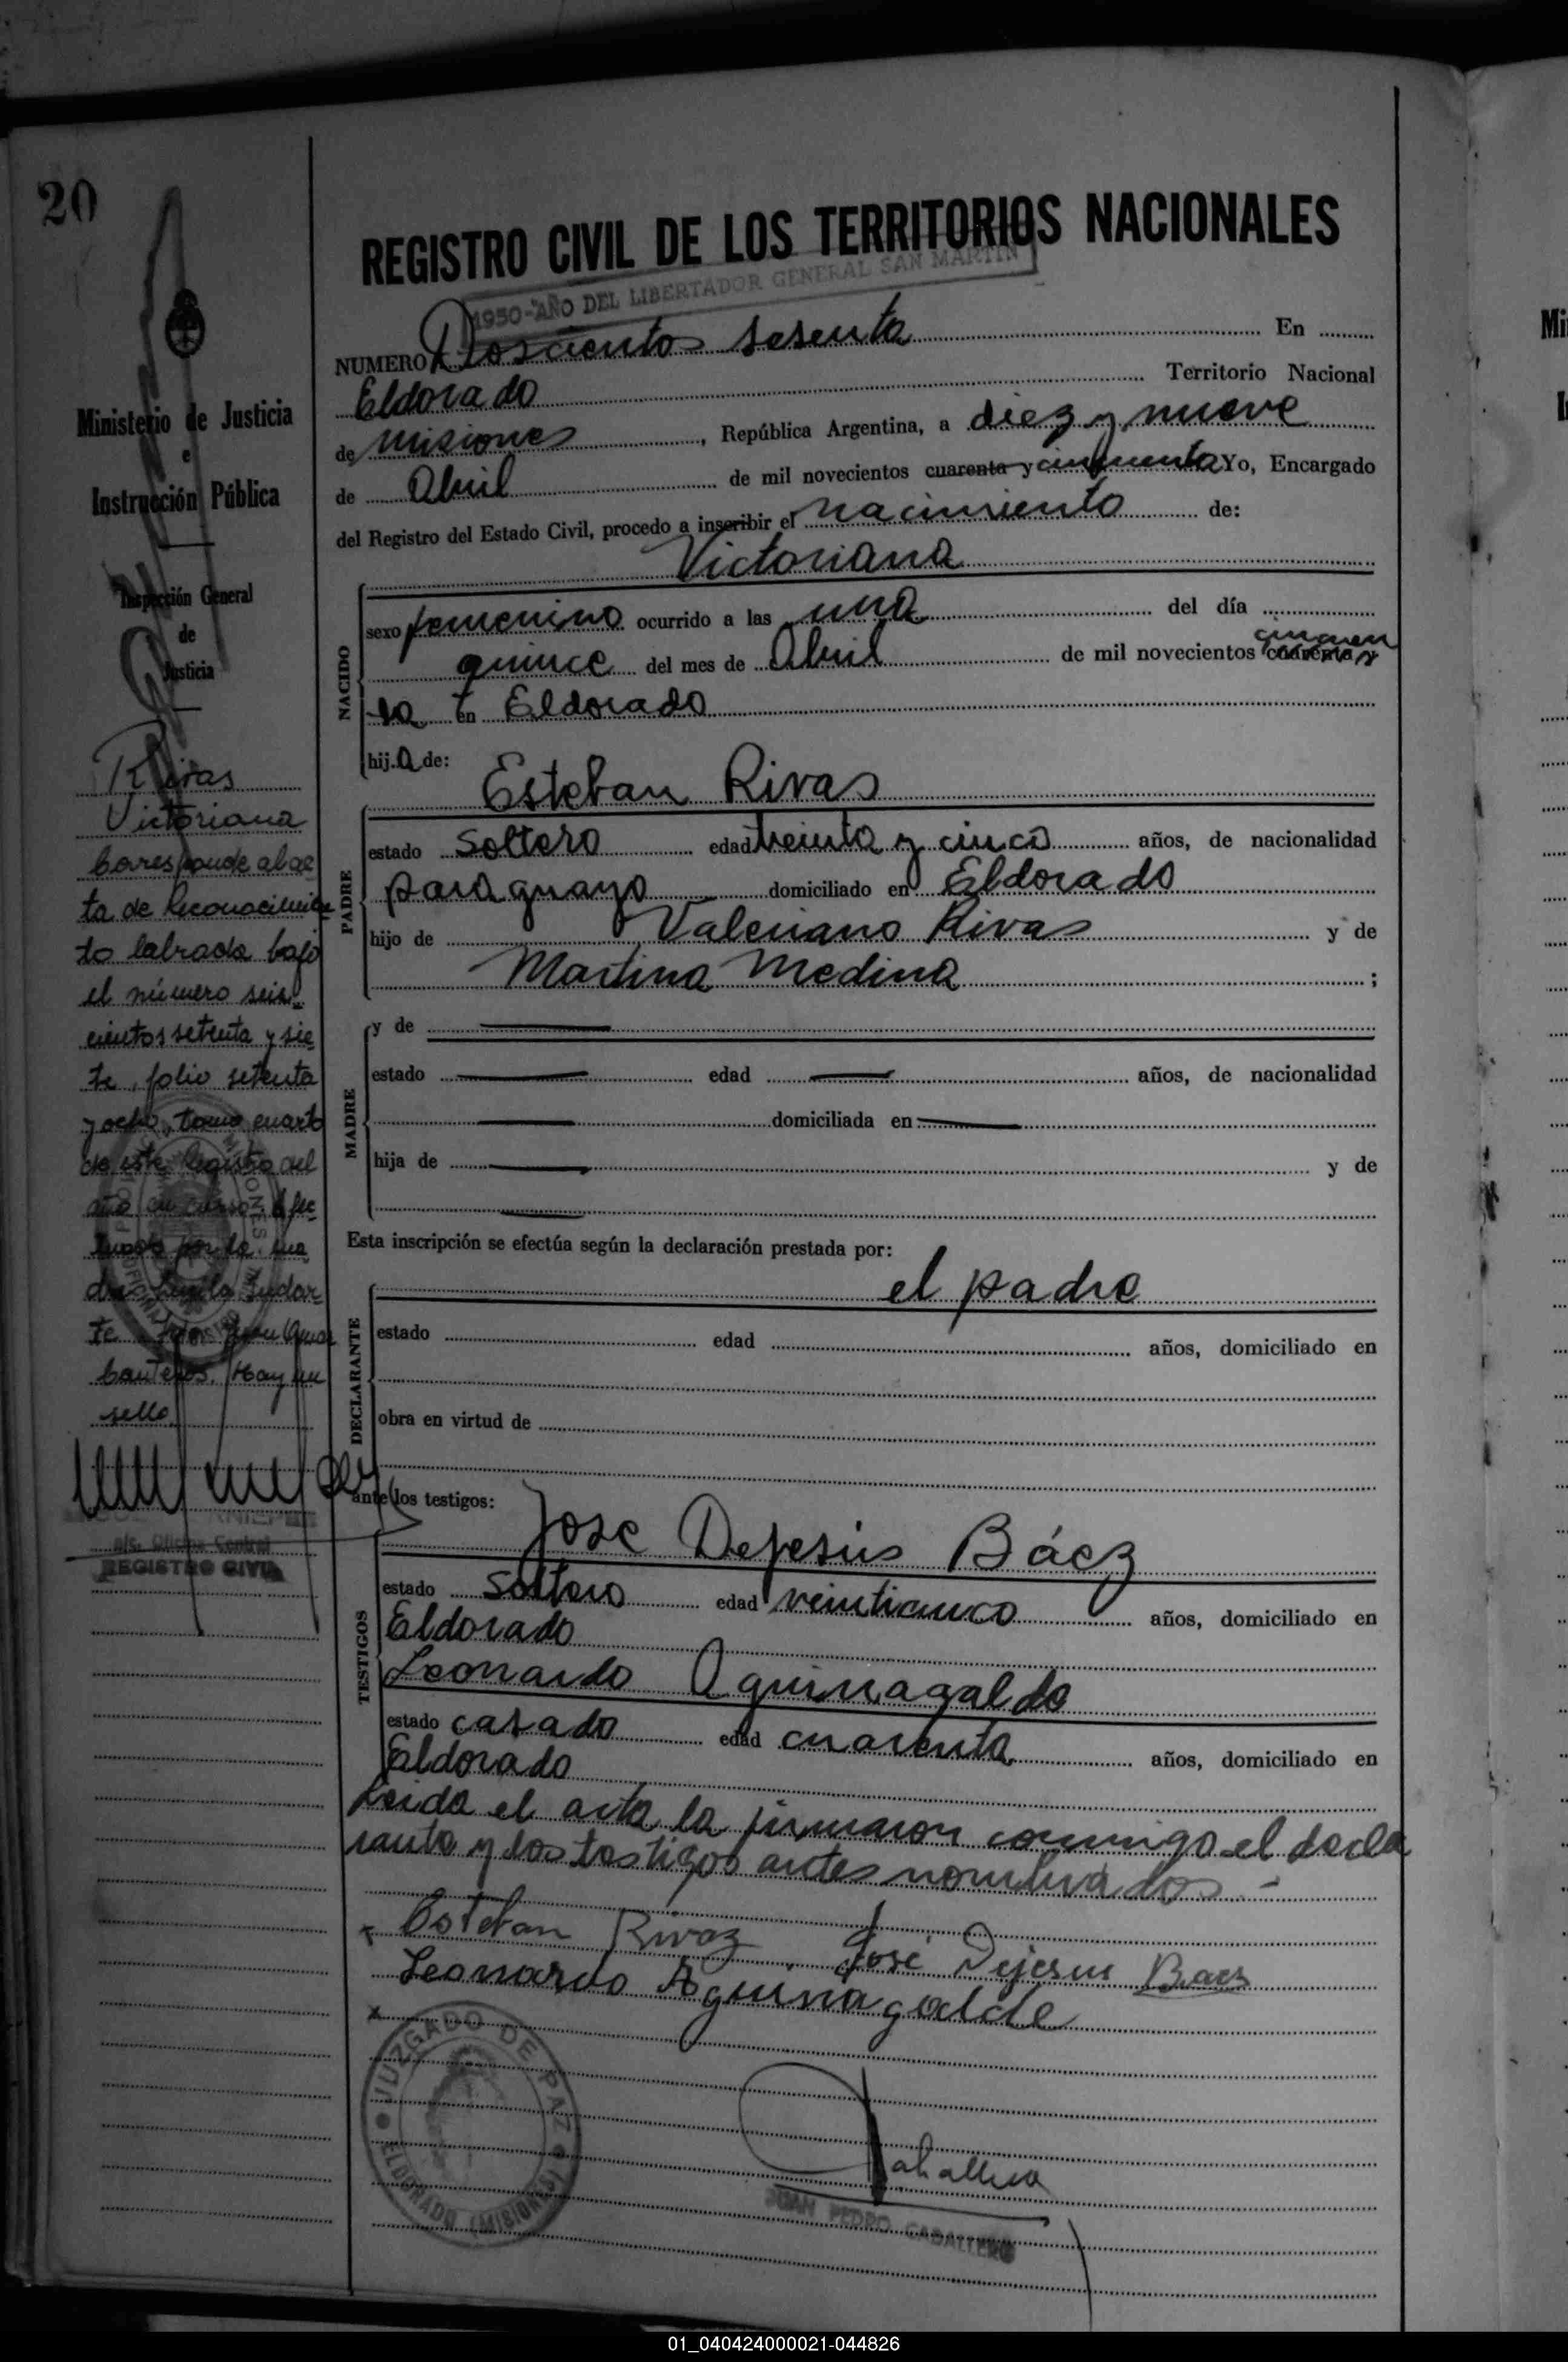 20
REGISTRO CIVIL DE LOS TERRITORIOS NACIONALES
1950-AÑO DEL LIBERTADOR GENERAL SAN MARTIN
NUMERO Doscientos sesenta En
Eldorado Territorio Nacional
de Misiones, República Argentina, a diez y nueve
de Abril de mil novecientos cuarenta y cincuenta Yo, Encargado
del Registro del Estado Civil, procedo a inscribir el nacimiento de:
Victoriana
NACIDO
sexo femenino ocurrido a las una del día
quince del mes de Abril de mil novecientos cuarenta y cincuen
ta en Eldorado
hij.a de:
PADRE
Esteban Rivas
estado soltero edad treinta y cinco años, de nacionalidad
paraguayo domiciliado en Eldorado
hijo de Valeriano Rivas y de
Martina Medina ;
MADRE
y de
estado edad años, de nacionalidad
domiciliada en
hija de y de
Esta inscripción se efectúa según la declaración prestada por:
DECLARANTE
el padre
estado edad años, domiciliado en
obra en virtud de
ante los testigos:
TESTIGOS
Jose Dejesús Báez
estado soltero edad veinticinco años, domiciliado en
Eldorado
Leonardo Aguinagalde
estado casado edad cuarenta años, domiciliado en
Eldorado
Leida el acta la firmaron conmigo el decla
rante y los testigos antes nombrados.-
Esteban Rivaz José Dejesus Baez
Leonardo Aguinagalde
JUZGADO DE PAZ
ELDORADO (MISIONES)
Caballero
JUAN PEDRO CABALLERO
Ministerio de Justicia
e
Instrucción Pública
Inspección General
de
Justicia
Rivas
Victoriana
Corresponde al ac
ta de Reconocimien
to labrada bajo
el número seis
cientos setenta y sie
te, folio setenta
y ocho, tomo cuarto
de este Registro del
año en curso. Efec
tuado por la ma
dre
sello.
a/c. Oficina Central
REGISTRO CIVIL
01_040424000021-044826